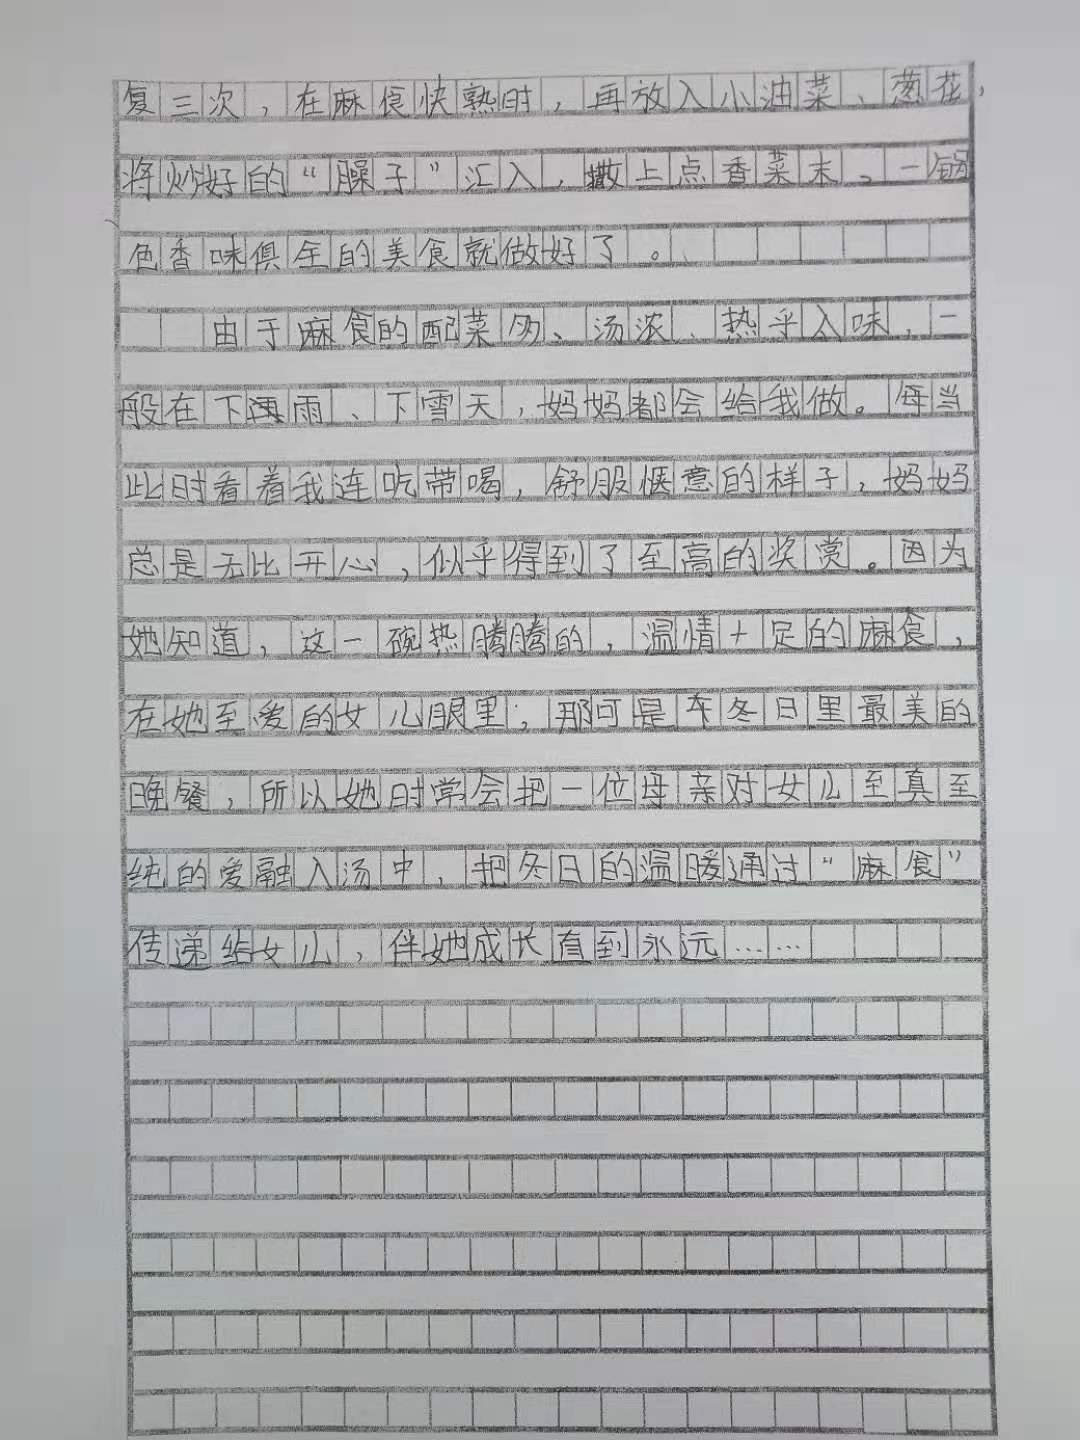 复三次，在麻食快熟时，再放入小油菜、葱花，
将炒好的“臊子”汇入，撒上点香菜末。一锅
色香味俱全的美食就做好了。
由于麻食的配菜多、汤浓、热乎入味，一
般在下雨、下雪天，妈妈都会给我做。每当
此时看着我连吃带喝，舒服惬意的样子，妈妈
总是无比开心，似乎得到了至高的奖赏。因为
她知道，这一碗热腾腾的，温情十足的麻食，
在她至爱的女儿眼里，那可是冬日里最美的
晚餐，所以她时常会把一位母亲对女儿至真至
纯的爱融入汤中，把冬日的温暖通过“麻食”
传递给女儿，伴她成长直到永远……